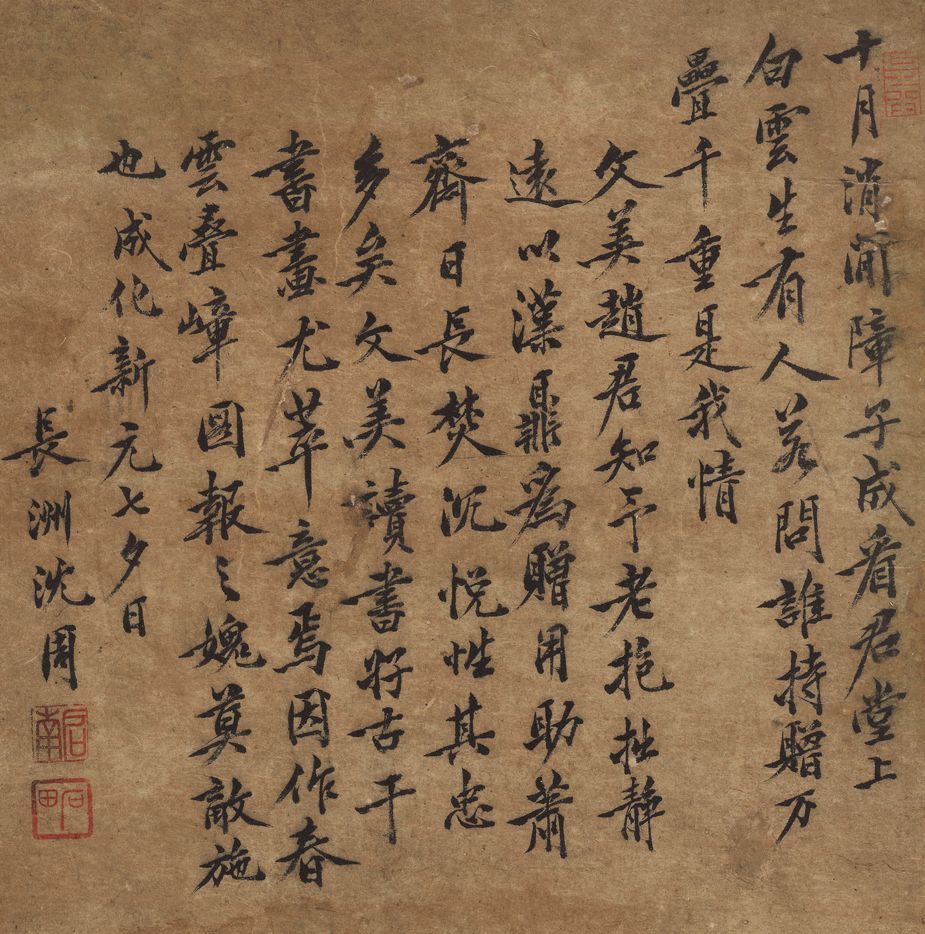 十月消閒障子成看君堂上
白雲生有人若問誰持贈万
疊千重是我情
文美趙君知予老抱拙靜
遠以漢鼎為贈用助蕭
齋日長焚沉悅性其惠
多矣文美讀書好古于
書畫尤萃意焉因作春
雲疊嶂圖報之媿莫敵施
也成化新元七夕日
長洲沈周
啟南
石田